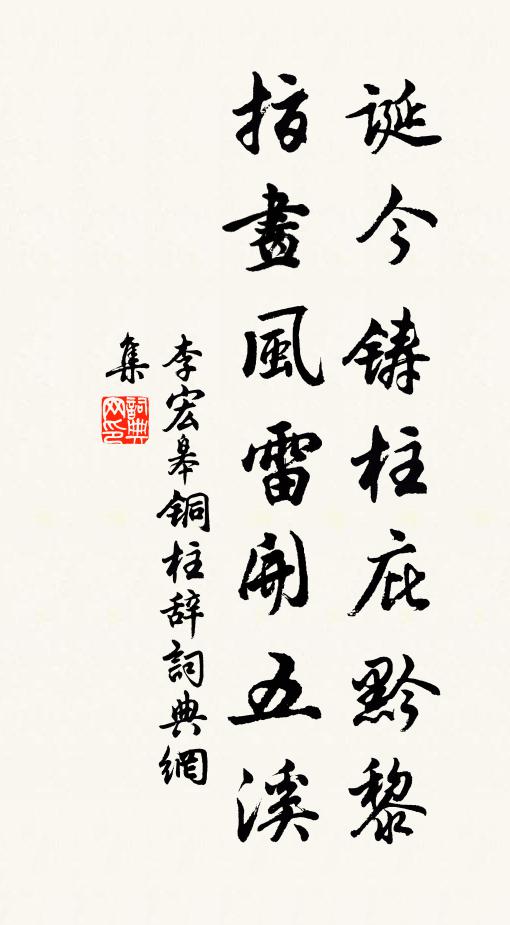 誕今鑄柱庇黔黎
指畫風雷開五溪
李宏皋銅柱辞詞典網
集
詞典网印